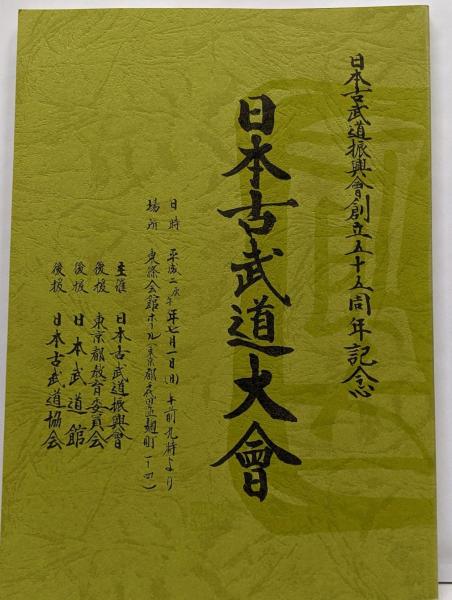 日本古武道振興會創立五十五周年記念
日本古武道大會
日時 平成二庚午年七月一日(日)午前九時より
場所 東條会館ホール(東京都千代田区麹町一ー四)
主催 日本古武道振興會
後援 東京都教育委員会
後援 日本武道館
後援 日本古武道協会